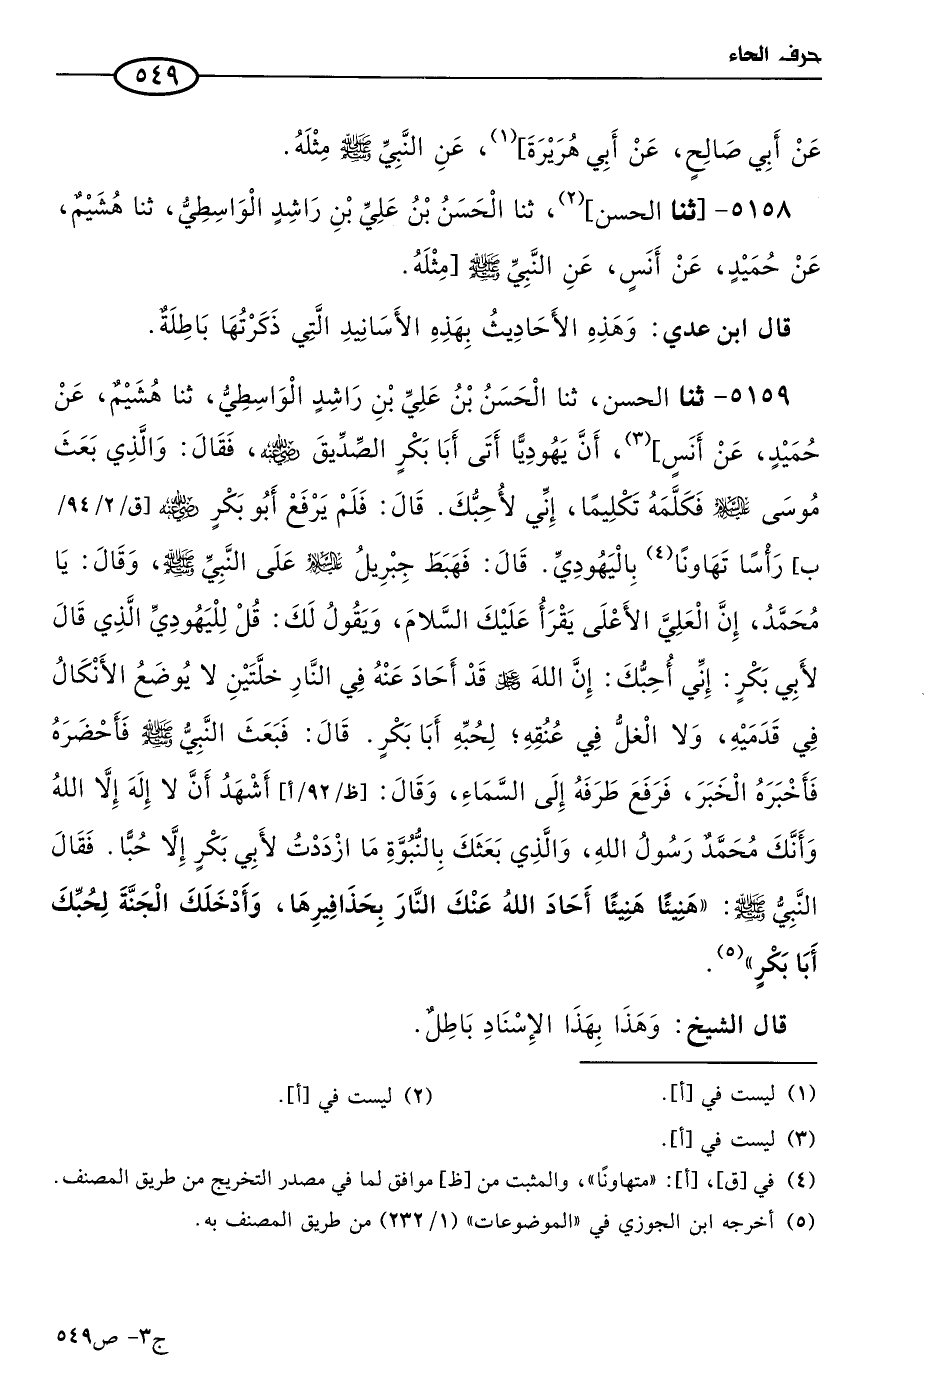 حرف الحاء
٥٤٩
عَنْ أَبِي صَالِحٍ، عَنْ أَبِي هُرَيْرَةَ](١)، عَنِ النَّبِيِّ ﷺ مِثْلَهُ.
٥١٥٨- [ثنا الحسن](٢)، ثنا الْحَسَنُ بْنُ عَلِيِّ بْنِ رَاشِدٍ الْوَاسِطِيُّ، ثنا هُشَيْمٌ،
عَنْ حُمَيْدٍ، عَنْ أَنَسٍ، عَنِ النَّبِيِّ ﷺ [مِثْلَهُ.
قال ابن عدي: وَهَذِهِ الأَحَادِيثُ بِهَذِهِ الأَسَانِيدِ الَّتِي ذَكَرْتُهَا بَاطِلَةٌ.
٥١٥٩- ثنا الحسن، ثنا الْحَسَنُ بْنُ عَلِيِّ بْنِ رَاشِدٍ الْوَاسِطِيُّ، ثنا هُشَيْمٌ، عَنْ
حُمَيْدٍ، عَنْ أَنَسٍ](٣)، أَنَّ يَهُودِيًّا أَتَى أَبَا بَكْرٍ الصِّدِّيقَ رضي الله عنه، فَقَالَ: وَالَّذِي بَعَثَ
مُوسَى عليه السلام فَكَلَّمَهُ تَكْلِيمًا، إِنِّي لأُحِبُّكَ. قَالَ: فَلَمْ يَرْفَعْ أَبُو بَكْرٍ رضي الله عنه [ق/٢/٩٤/
ب] رَأْسًا تَهَاونًا(٤) بِالْيَهُودِيِّ. قَالَ: فَهَبَطَ جِبْرِيلُ عليه السلام عَلَى النَّبِيِّ ﷺ، وَقَالَ: يَا
مُحَمَّدُ، إِنَّ الْعَلِيَّ الأَعْلَى يَقْرَأُ عَلَيْكَ السَّلامَ، وَيَقُولُ لَكَ: قُلْ لِلْيَهُودِيِّ الَّذِي قَالَ
لأَبِي بَكْرٍ: إِنِّي أُحِبُّكَ: إِنَّ اللهَ عز وجل قَدْ أَحَادَ عَنْهُ فِي النَّارِ خلَّتَيْنِ لا يُوضَعُ الأَنْكَالُ
فِي قَدَمَيْهِ، وَلا الْغلُّ فِي عُنُقِهِ؛ لِحُبِّهِ أَبَا بَكْرٍ. قَالَ: فَبَعَثَ النَّبِيُّ ﷺ فَأَحْضَرَهُ
فَأَخْبَرَهُ الْخَبَرَ، فَرَفَعَ طَرَفَهُ إِلَى السَّمَاءِ، وَقَالَ: [ظ/٩٢/أ] أَشْهَدُ أَنَّ لا إِلَهَ إِلَّا اللهُ
وَأَنَّكَ مُحَمَّدٌ رَسُولُ اللهِ، وَالَّذِي بَعَثَكَ بِالنُّبُوَّةِ مَا ازْدَدْتُ لأَبِي بَكْرٍ إِلَّا حُبًّا. فَقَالَ
النَّبِيُّ ﷺ: «هَنِيئًا هَنِيئًا أَحَادَ اللهُ عَنْكَ النَّارَ بِحَذَافِيرِهَا، وَأَدْخَلَكَ الْجَنَّةَ لِحُبِّكَ
أَبَا بَكْرٍ»(٥).
قال الشيخ: وَهَذَا بِهَذَا الإِسْنَادِ بَاطِلٌ.
(١) ليست في [أ]. (٢) ليست في [أ].
(٣) ليست في [أ].
(٤) في [ق]، [أ]: «متهاونًا»، والمثبت من [ظ] موافق لما في مصدر التخريج من طريق المصنف.
(٥) أخرجه ابن الجوزي في «الموضوعات» (١/ ٢٣٢) من طريق المصنف به.
ج٣- ص٥٤٩